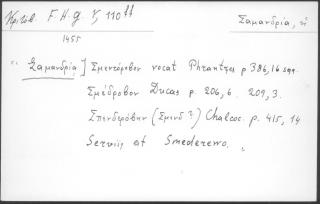 Κριτόβ. F.H.G V, 110 ff
Σαμανδρία, ἡ
1455
"Σαμανδρία] Σμεντόροβον vocat Phrantzes p 386,16 sqq.
Σμέδροβον Ducas p. 206, 6. 209, 3.
Σπενδερόβην (Σμενδ?) Chalcoc. p. 415, 14
Serviis est Smederewo.